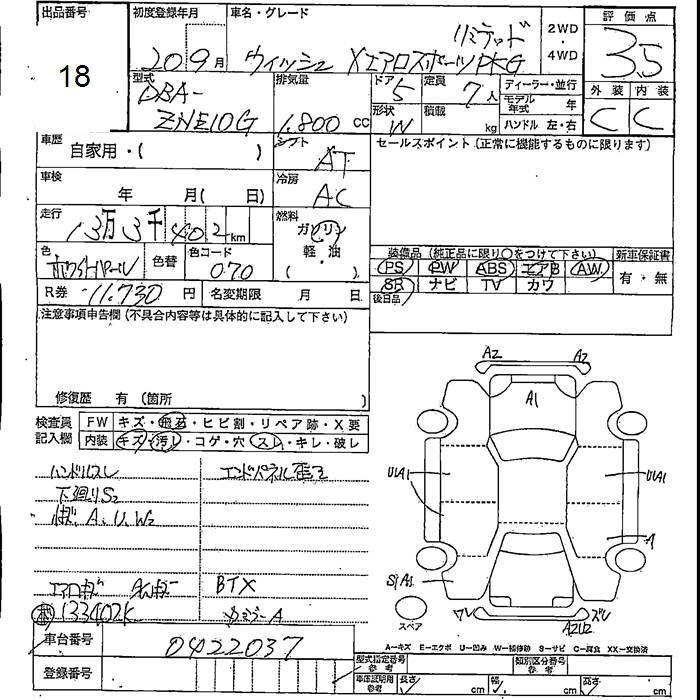 出品番号 初度登録年月 車名・グレード 評価点
18 20 9月 ウィッシュ XエアロスポーツPKG リミテッド 2WD・4WD 3.5
型式 排気量 ドア 5 定員 7人 ディーラー・並行 外装 内装
DBA-
ZNE10G 1,800 CC 形状 W 積載 kg モデル年式 年 C C
ハンドル 左・右
車歴 自家用・( ) シフト AT セールスポイント(正常に機能するものに限ります)
車検 年 月( 日) 冷房 AC
走行 13万3千402km 燃料 ガソリン
軽・油
( )
色 ホワイトパール 色替 色コード 070
装備品(純正品に限り○をつけて下さい) 新車保証書
PS PW ABS エアB AW 有・無
SR ナビ TV カワ
後日品
R券 11,730 円 名変期限 月 日
注意事項申告欄(不具合内容等は具体的に記入して下さい)
修復歴 有(箇所 )
検査員記入欄 FW キズ・飛石・ヒビ割・リペア跡・X要
内装 キズ・汚レ・コゲ・穴・スレ・キレ・破レ
ハンドルスレ
下廻りS2
A、U、W2
BTX
133402K
車台番号 0422037
登録番号
A2 A2
A1
UA1 UA1
A
S1A1
スペア
ワレ ズレ
A2U2
A-キズ E-エクボ U-凹み W-補修跡 S-サビ C-腐食 XX-交換済
型式指定番号 参考 類別区分番号 参考
車庫証明用 参考 長さ cm 幅 cm 高さ cm